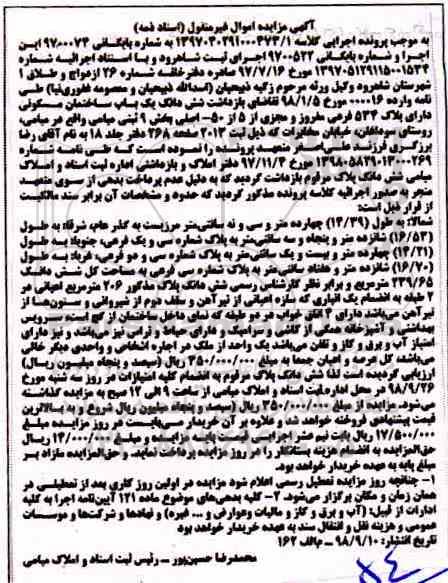 آگهی مزایده اموال غیرمنقول (اسناد ذمه)
به موجب پرونده اجرایی کلاسه ۱۳۹۷۰۴۰۲۹۱۰۰۰۴۷۳/۱ به شماره بایگانی ۹۷۰۰۰۷۴ این
اجرا و شماره بایگانی ۹۷۰۰۵۲۲ اجرای ثبت شاهرود و با استناد اجرائیه شماره
۱۳۹۷۰۵۱۲۹۱۱۵۰۰۱۵۳۴ مورخ ۹۷/۷/۱۶ صادره دفترخانه شماره ۲۶ ازدواج و طلاق ۱
شهرستان شاهرود وکیل ورثه مرحوم زکیه ذبیحیان (اسدالله ذبیحیان و معصومه غفوری‌نیا) طی
نامه وارده ۰۰۰۱۶ مورخ ۹۸/۱/۵ تقاضای بازداشت شش دانگ یک باب ساختمان مسکونی
دارای پلاک ۵۳۴ فرعی مفروز و مجزی از ۵ از ۵۰- اصلی بخش ۹ ثبتی میامی واقع در میامی،
روستای سوداغلن، خیابان مخابرات که ذیل ثبت ۲۰۱۳ صفحه ۲۶۸ دفتر جلد ۱۸ به نام آقای رضا
برزگری فرزند علی‌اصغر متعهد پرونده را نموده است که طی نامه شماره
۱۳۹۸۰۵۸۲۹۰۱۳۰۰۰۲۶۹ مورخ ۹۷/۱۱/۴ دفتر املاک و بازداشتی اداره ثبت اسناد و املاک
میامی شش دانگ پلاک مرقوم بازداشت گردید که به دلیل عدم پرداخت بدهی از سوی متعهد
منجر به صدور اجرائیه کلاسه پرونده مذکور گردید که حدود و مشخصات آن برابر سند مالکیت
از قرار ذیل است:
شمالا: به طول (۱۴/۳۹) چهارده متر و سی و نه سانتی‌متر مرزیست به گذر عام، شرقا: به طول
(۱۶/۵۳) شانزده متر و پنجاه و سه سانتی‌متر به پلاک شماره سی و یک فرعی، جنوبا: به طول
(۱۴/۲۱) چهارده متر و بیست و یک سانتی‌متر به پلاک شماره سی و دو فرعی، غربا: به طول
(۱۶/۷۰) شانزده متر و هفتاد سانتی‌متر به پلاک شماره سی فرعی به مساحت کل شش دانگ
۲۳۹/۶۵ مترمربع و برابر نظر کارشناس رسمی شش دانگ پلاک مذکور ۲۰۶ مترمربع اعیانی در
۲ طبقه به انضمام یک انباری که سازه اعیانی از تیرآهن و سقف دوم از شیروانی و ستون‌ها از
تیرآهن می‌باشد دارای ۴ اتاق خواب در دو طبقه که نمای داخل ساختمان از گچ است، سرویس
بهداشتی و آشپزخانه همگی از کاشی و سرامیک و دارای حیاط و تراس نیز می‌باشد و نیز دارای
امتیاز آب و برق و گاز و تلفن می‌باشد یک واحد از ملک در اجاره اشخاص و واحدی دیگر خالی
می‌باشد، کل عرصه و اعیان جمعا به مبلغ ۳۵۰/۰۰۰/۰۰۰ ریال (سیصد و پنجاه میلیون ریال)
ارزیابی گردیده است لذا شش دانگ پلاک مرقوم به انضمام کلیه امتیازات در روز سه شنبه مورخ
۹۸/۹/۲۶ در محل اداره ثبت اسناد و املاک میامی از ساعت ۹ الی ۱۲ صبح به مزایده گذاشته
می‌شود. مزایده از مبلغ ۳۵۰/۰۰۰/۰۰۰ ریال (سیصد و پنجاه میلیون ریال شروع و به بالاترین
قیمت پیشنهادی فروخته خواهد شد و علاوه بر آن خریدار می‌بایست در روز مزایده مبلغ
۱۷/۵۰۰/۰۰۰ ریال بابت نیم عشر اجرایی بابت مزایده و مبلغ ۱۴/۰۰۰/۰۰۰ ریال
حق‌المزایده به انضمام هزینه بستانکار را در روز مزایده پرداخت نماید. و حق‌المزایده مازاد بر
مبلغ پایه به عهده خریدار خواهد بود.
۱- چنانچه روز مزایده تعطیل رسمی اعلام شود مزایده در اولین روز کاری بعد از تعطیلی در
همان زمان و مکان برگزار می‌شود. ۲- کلیه بدهی‌های موضوع ماده ۱۲۱ آیین‌نامه اجرا به کلیه
ادارات از قبیل: (آب و برق و گاز و مالیات و عوارض و ... غیره) و نهادها و شرکت‌ها و موسسات
عمومی و هزینه نقل و انتقال سند به عهده خریدار خواهد بود
تاریخ انتشار: ۹۸/۹/۱۰ – م‌الف ۱۶۲
محمدرضا حسین‌پور – رئیس ثبت اسناد و املاک میامی